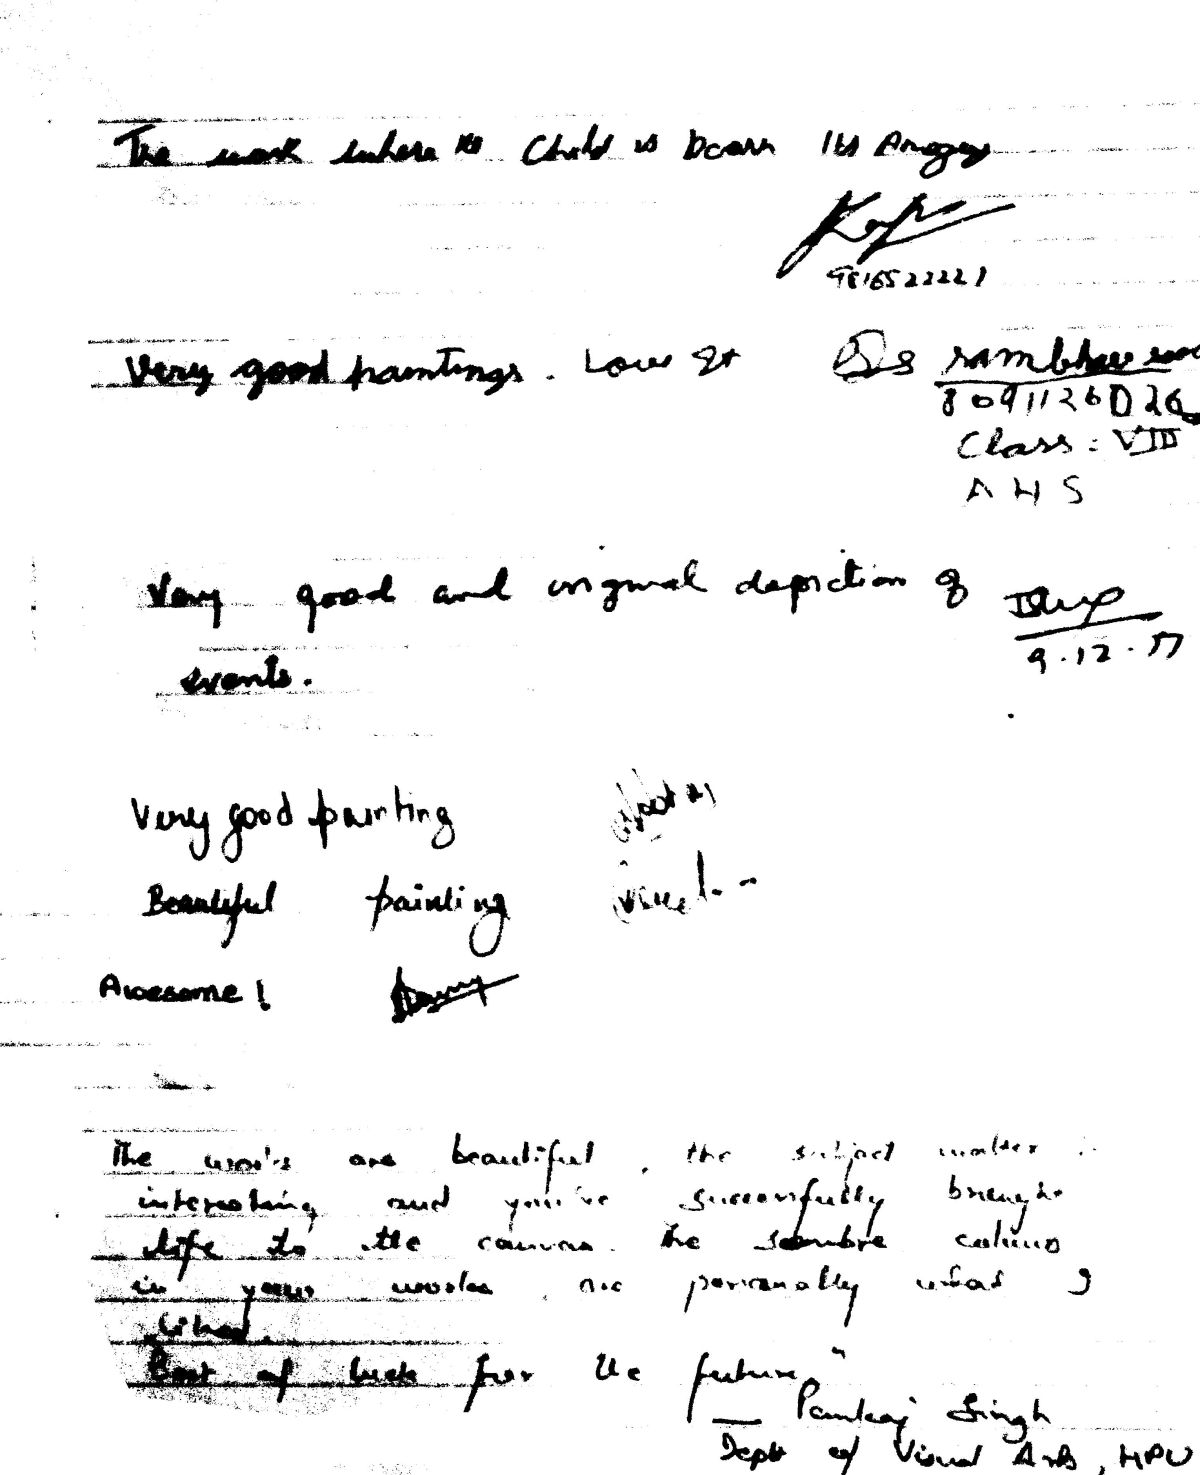 The work where its Child is Born Its Amazing
9816522221
Very good paintings. Love It
8091126026
Class: VIII
AHS
Very good and original depiction of
9.12.17
events.
Very good painting
Beautiful painting
Awesome!
The works are beautiful, the subject matter is
interesting and you've successfully brought
life to the canvas. The sombre colours
in your works are personally what I
liked.
Best of luck for the future"
— Pankaj Singh
Dept of Visual Arts, HPU